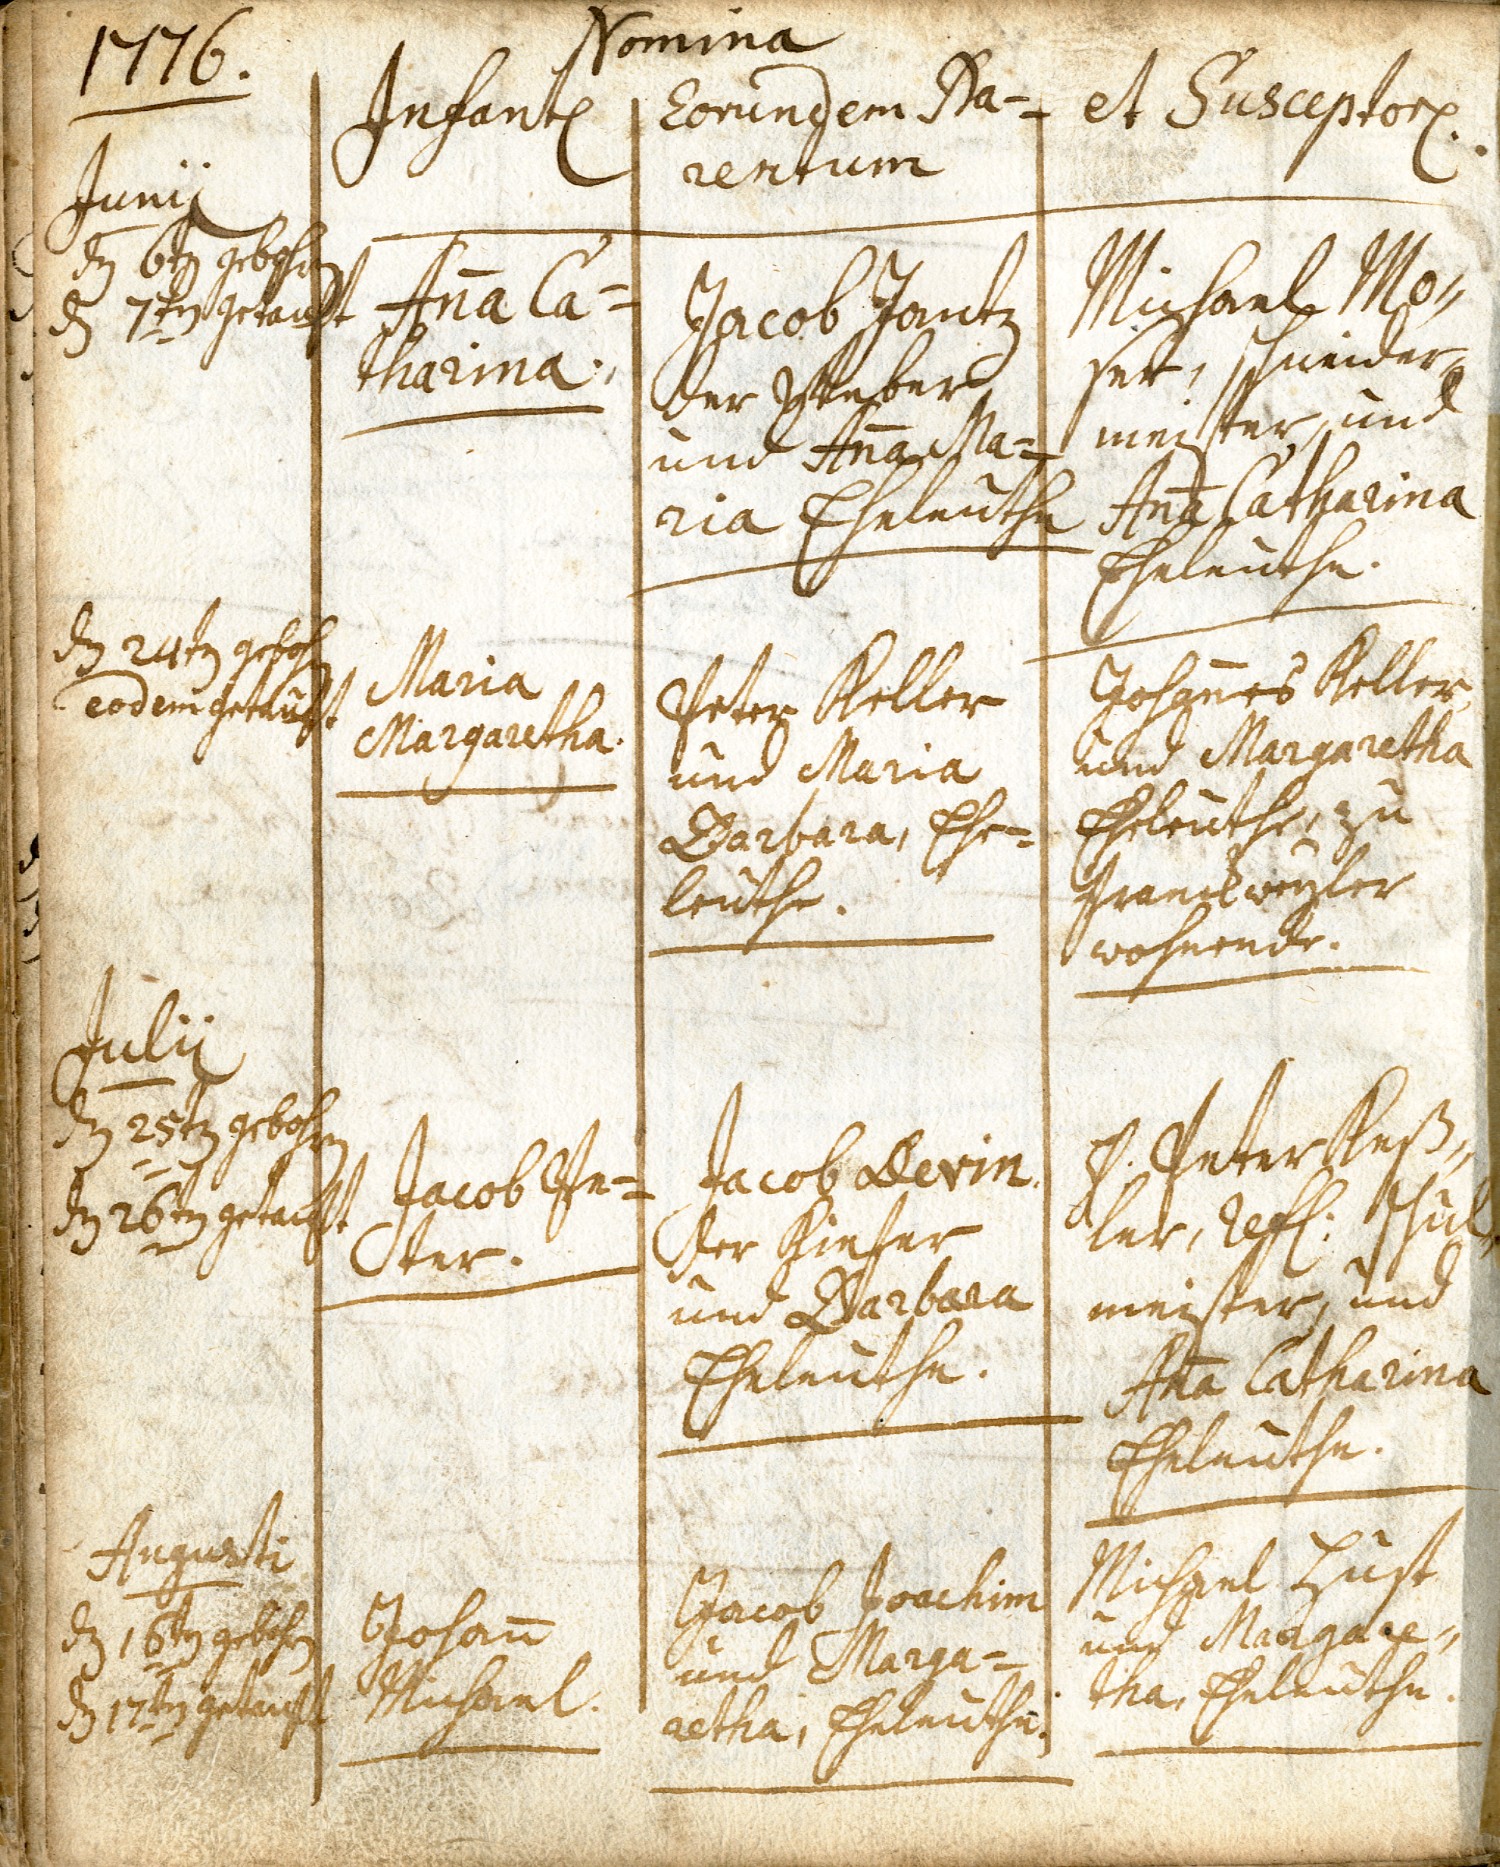 1776.
Nomina
Infant
Eorundem Pa-
rentum
et Susceptor
Junij
dn 6tn gebohrn
dn 7tn getaufft
Aña Ca-
tharina.
Jacob Jantz
der Weber
und Aña Ma-
ria Eheleuthe
Michael Mo-
ser, schneider-
meister, und
Aña Catharina
Eheleuthe.
dn 24tn gebohrn
eodem getaufft
Maria
Margaretha.
Peter Keller
und Maria
Barbara, Ehe-
leuthe.
Johañes Keller,
und Margaretha
Eheleuthe, zu
Franckweyler
wohnende.
Julij
dn 25tn gebohrn
dn 26tn getaufft
Jacob Pe-
ter.
Jacob Devin.
der Kiefer
und Barbara
Eheleuthe.
H. Peter Keß-
ler, refl: schul-
meister, und
Aña Catharina
Eheleuthe.
Augusti
dn 16tn gebohrn
dn 17tn getaufft
Johañ
Michael.
Jacob Joachim
und Marga-
retha, Eheleuthe.
Michael Hust
und Margare-
tha, Eheleuthe.